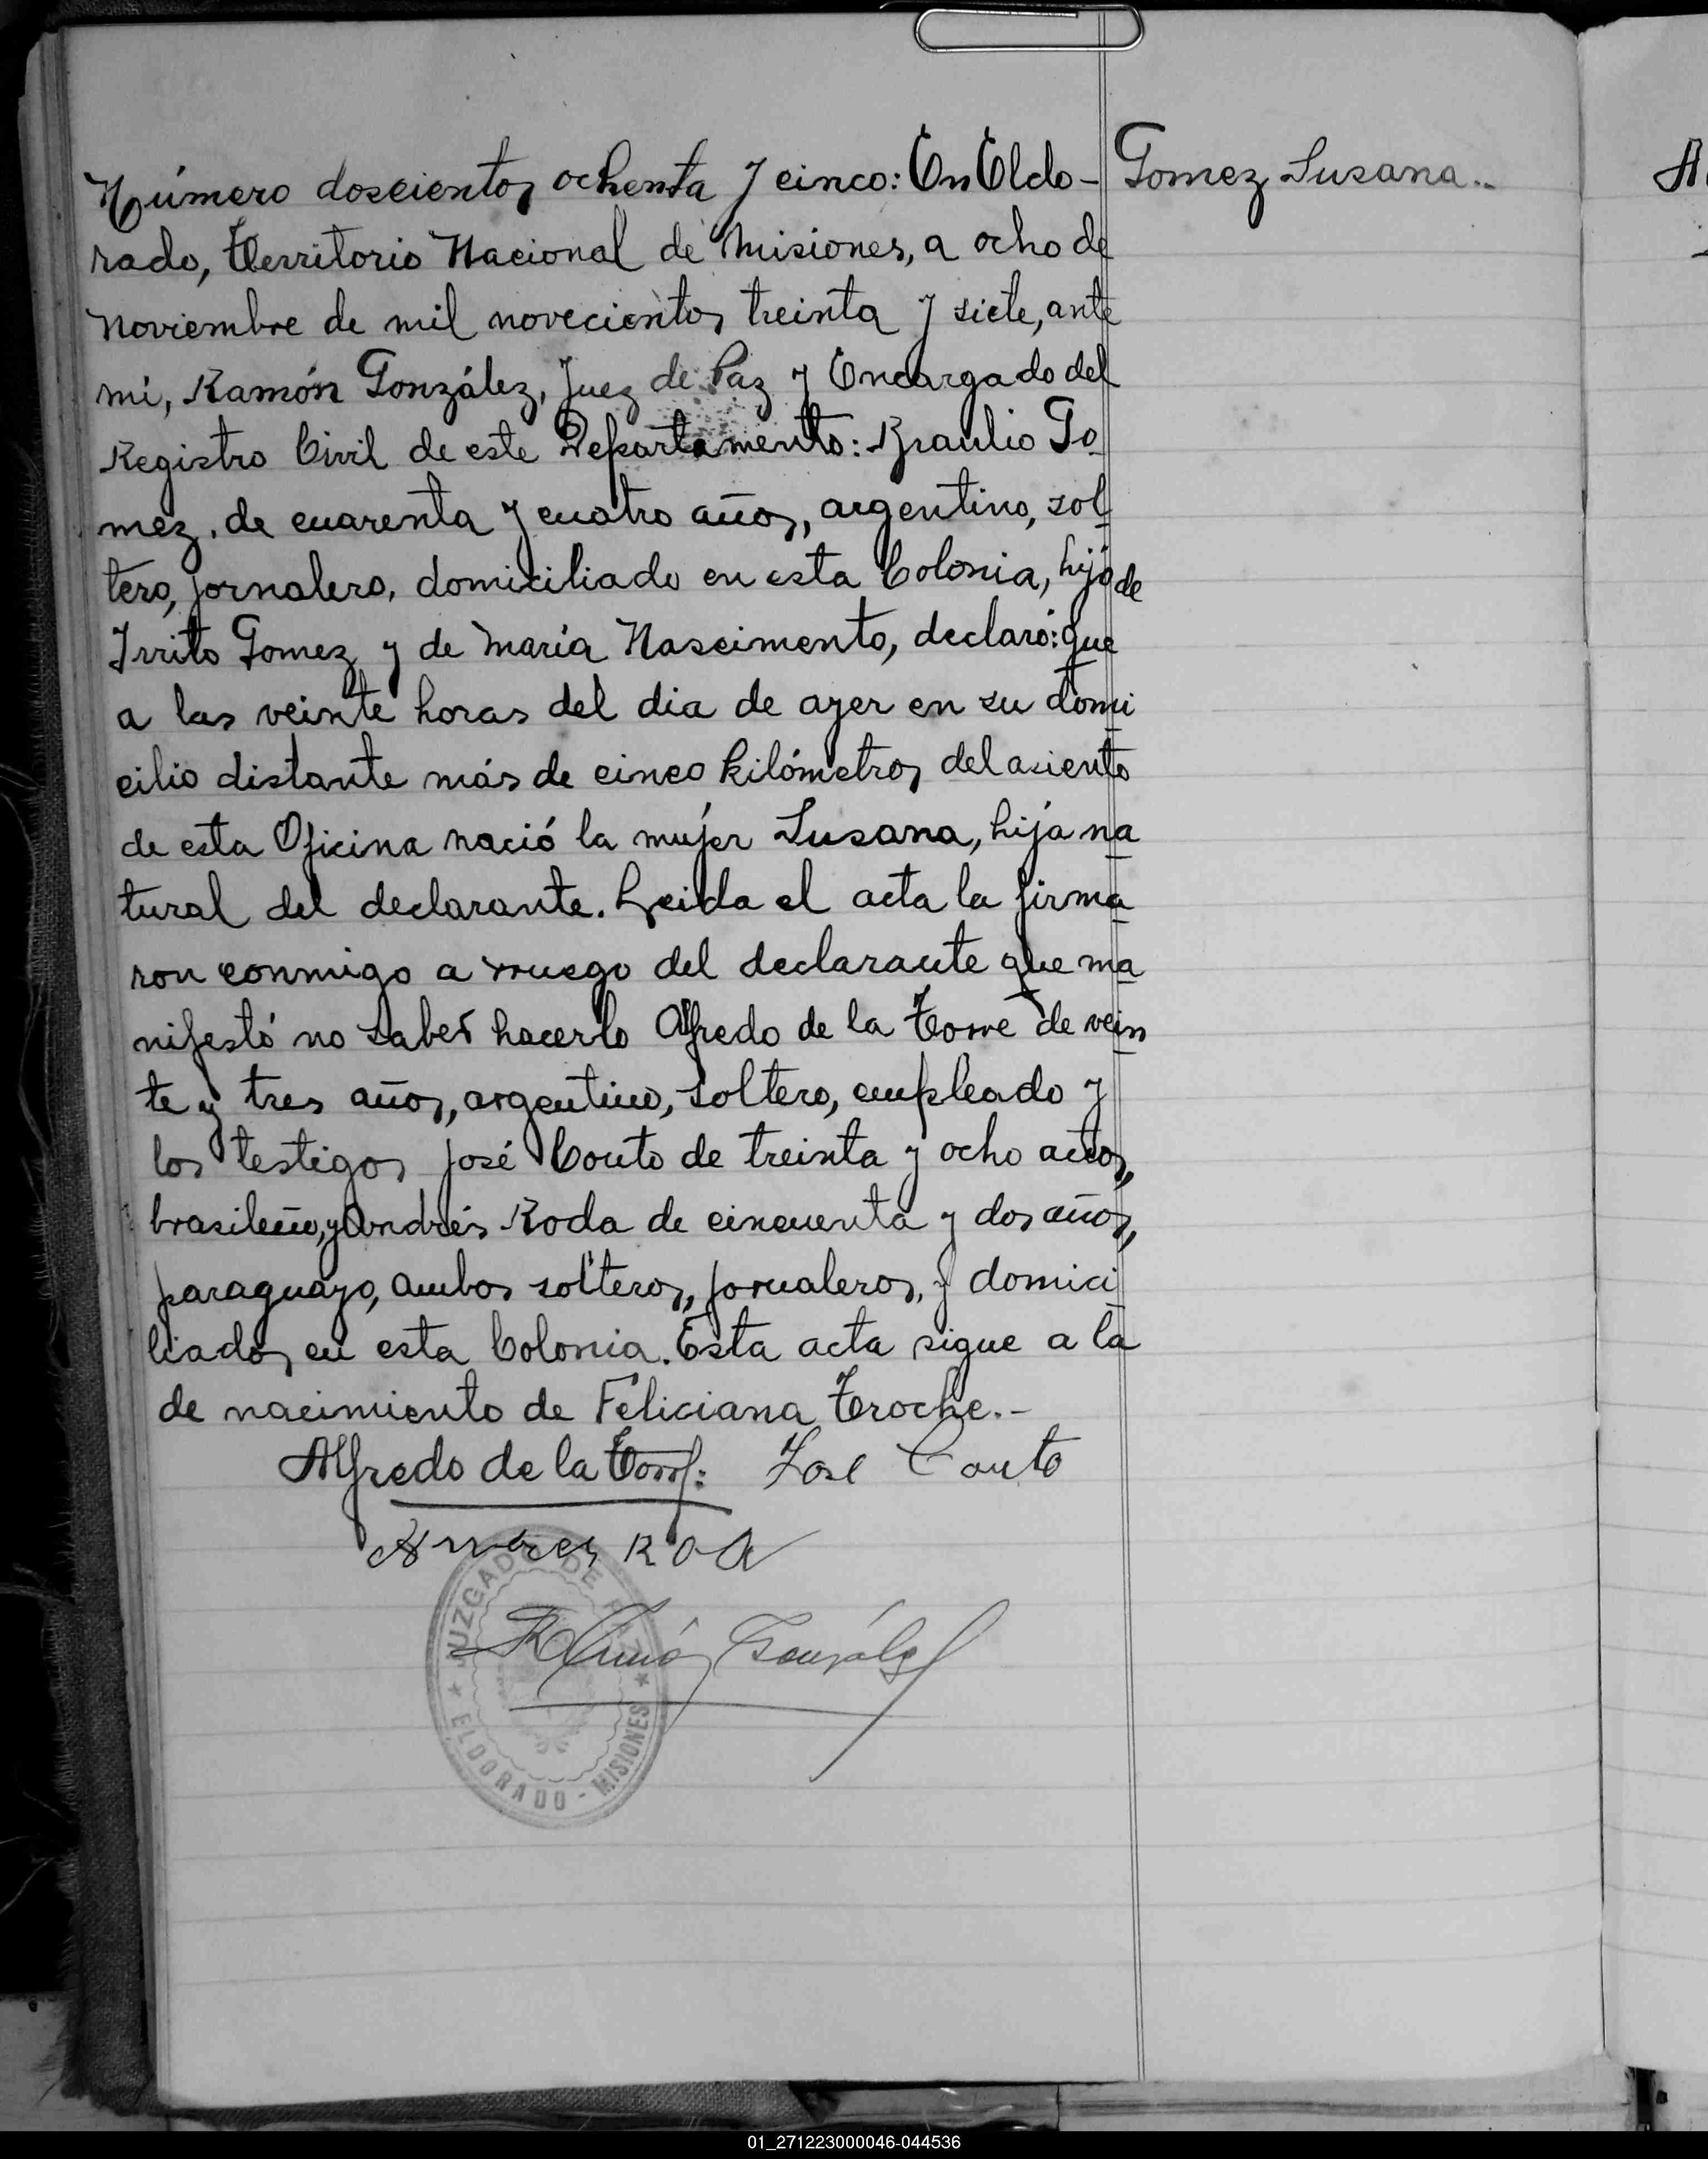 Número doscientos ochenta y cinco: En Eldo-
Gomez Susana..
rado, Territorio Nacional de Misiones, a ocho de
Noviembre de mil novecientos treinta y siete, ante
mí, Ramón González, Juez de Paz y Encargado del
Registro Civil de este Departamento: Braulio Go
mez, de cuarenta y cuatro años, argentino, sol
tero, jornalero, domiciliado en esta Colonia, hijo de
Irrito Gomez y de María Nascimento, declaró: que
a las veinte horas del dia de ayer en su domi
cilio distante más de cinco kilómetros del asiento
de esta Oficina nació la mujer Susana, hija na
tural del declarante. Leida el acta la firma
ron conmigo a rruego del declarante que ma
nifestó no saber hacerlo Alfredo de la Torre de vein
te y tres años, argentino, soltero, empleado y
los testigos José Couto de treinta y ocho años,
brasileño, y Andrés Roda de cincuenta y dos años,
paraguayo, ambos solteros, jornaleros, y domici
liados en esta Colonia. Esta acta sigue a la
de nacimiento de Feliciana Troche.-
Alfredo de la Torre: José Couto
Ramón González
JUZGADO DE PAZ
★ ELDORADO - MISIONES ★
01_271223000046-044536